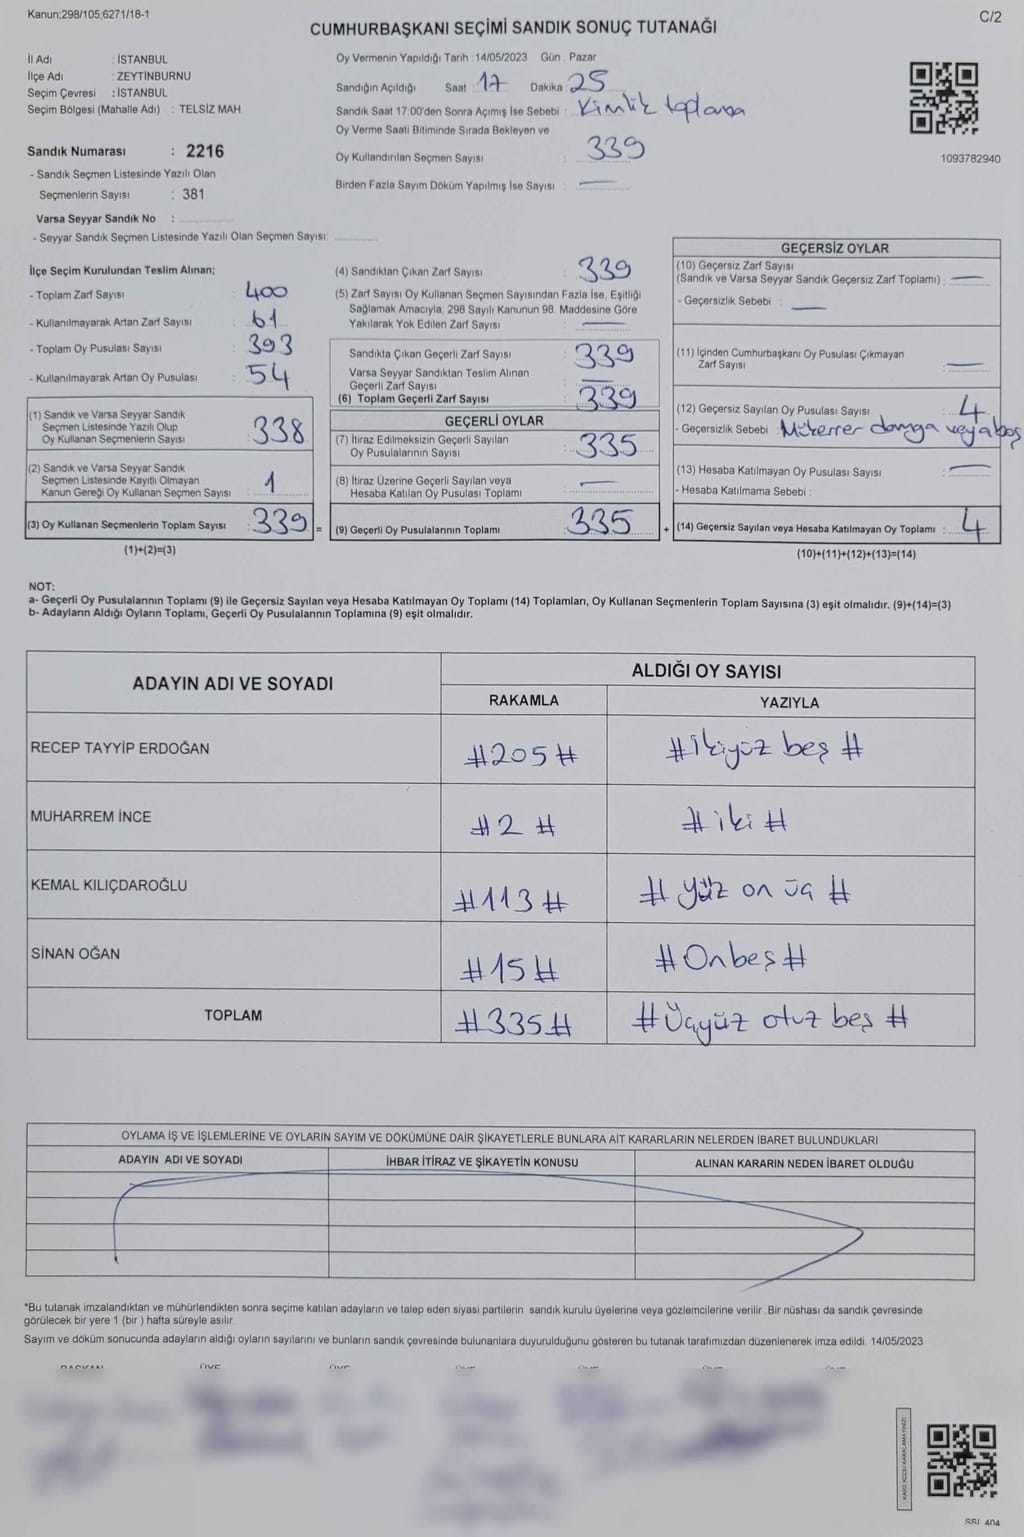 Kanun;298/105;6271/18-1
C/2
CUMHURBAŞKANI SEÇİMİ SANDIK SONUÇ TUTANAĞI
İl Adı : İSTANBUL
İlçe Adı : ZEYTİNBURNU
Seçim Çevresi : İSTANBUL
Seçim Bölgesi (Mahalle Adı) : TELSİZ MAH.
Sandık Numarası : 2216
- Sandık Seçmen Listesinde Yazılı Olan
Seçmenlerin Sayısı : 381
Varsa Seyyar Sandık No :
- Seyyar Sandık Seçmen Listesinde Yazılı Olan Seçmen Sayısı:
Oy Vermenin Yapıldığı Tarih : 14/05/2023 Gün : Pazar
Sandığın Açıldığı Saat : 17 Dakika : 25
Sandık Saat 17:00'den Sonra Açımış İse Sebebi : Kimlik toplama
Oy Verme Saati Bitiminde Sırada Bekleyen ve
Oy Kullandırılan Seçmen Sayısı : 339
Birden Fazla Sayım Döküm Yapılmış İse Sayısı : —
1093782940
İlçe Seçim Kurulundan Teslim Alınan;
- Toplam Zarf Sayısı : 400
- Kullanılmayarak Artan Zarf Sayısı : 61
- Toplam Oy Pusulası Sayısı : 393
- Kullanılmayarak Artan Oy Pusulası : 54
(1) Sandık ve Varsa Seyyar Sandık
Seçmen Listesinde Yazılı Olup
Oy Kullanan Seçmenlerin Sayısı : 338
(2) Sandık ve Varsa Seyyar Sandık
Seçmen Listesinde Kayıtlı Olmayan
Kanun Gereği Oy Kullanan Seçmen Sayısı : 1
(3) Oy Kullanan Seçmenlerin Toplam Sayısı : 339 =
(1)+(2)=(3)
(4) Sandıktan Çıkan Zarf Sayısı : 339
(5) Zarf Sayısı Oy Kullanan Seçmen Sayısından Fazla İse, Eşitliği
Sağlamak Amacıyla; 298 Sayılı Kanunun 98. Maddesine Göre
Yakılarak Yok Edilen Zarf Sayısı : —
Sandıkta Çıkan Geçerli Zarf Sayısı : 339
Varsa Seyyar Sandıktan Teslim Alınan
Geçerli Zarf Sayısı : —
(6) Toplam Geçerli Zarf Sayısı : 339
GEÇERLİ OYLAR
(7) İtiraz Edilmeksizin Geçerli Sayılan
Oy Pusulalarının Sayısı : 335
(8) İtiraz Üzerine Geçerli Sayılan veya
Hesaba Katılan Oy Pusulası Toplamı : —
(9) Geçerli Oy Pusulalarının Toplamı : 335 +
GEÇERSİZ OYLAR
(10) Geçersiz Zarf Sayısı
(Sandık ve Varsa Seyyar Sandık Geçersiz Zarf Toplamı) : —
- Geçersizlik Sebebi : —
(11) İçinden Cumhurbaşkanı Oy Pusulası Çıkmayan
Zarf Sayısı : —
(12) Geçersiz Sayılan Oy Pusulası Sayısı : 4
- Geçersizlik Sebebi : Mükerrer damga veya boş
(13) Hesaba Katılmayan Oy Pusulası Sayısı : —
- Hesaba Katılmama Sebebi :
(14) Geçersiz Sayılan veya Hesaba Katılmayan Oy Toplamı : 4
(10)+(11)+(12)+(13)=(14)
NOT:
a- Geçerli Oy Pusulalarının Toplamı (9) ile Geçersiz Sayılan veya Hesaba Katılmayan Oy Toplamı (14) Toplamları, Oy Kullanan Seçmenlerin Toplam Sayısına (3) eşit olmalıdır. (9)+(14)=(3)
b- Adayların Aldığı Oyların Toplamı, Geçerli Oy Pusulalarının Toplamına (9) eşit olmalıdır.
ADAYIN ADI VE SOYADI
ALDIĞI OY SAYISI
RAKAMLA YAZIYLA
RECEP TAYYİP ERDOĞAN #205# #ikiyüz beş #
MUHARREM İNCE #2 # # iki #
KEMAL KILIÇDAROĞLU #113 # # yüz on üç #
SİNAN OĞAN #15# #Onbeş#
TOPLAM #335# #Üçyüz otuz beş #
OYLAMA İŞ VE İŞLEMLERİNE VE OYLARIN SAYIM VE DÖKÜMÜNE DAİR ŞİKAYETLERLE BUNLARA AİT KARARLARIN NELERDEN İBARET BULUNDUKLARI
ADAYIN ADI VE SOYADI İHBAR İTİRAZ VE ŞİKAYETİN KONUSU ALINAN KARARIN NEDEN İBARET OLDUĞU
*Bu tutanak imzalandıktan ve mühürlendikten sonra seçime katılan adayların ve talep eden siyasi partilerin sandık kurulu üyelerine veya gözlemcilerine verilir .Bir nüshası da sandık çevresinde
görülecek bir yere 1 (bir ) hafta süreyle asılır.
Sayım ve döküm sonucunda adayların aldığı oyların sayılarını ve bunların sandık çevresinde bulunanlara duyurulduğunu gösteren bu tutanak tarafımızdan düzenlenerek imza edildi. 14/05/2023
BAŞKAN ÜYE ÜYE ÜYE ÜYE ÜYE ÜYE
KARE KODU KARALAMAYINIZ!
SSL 404